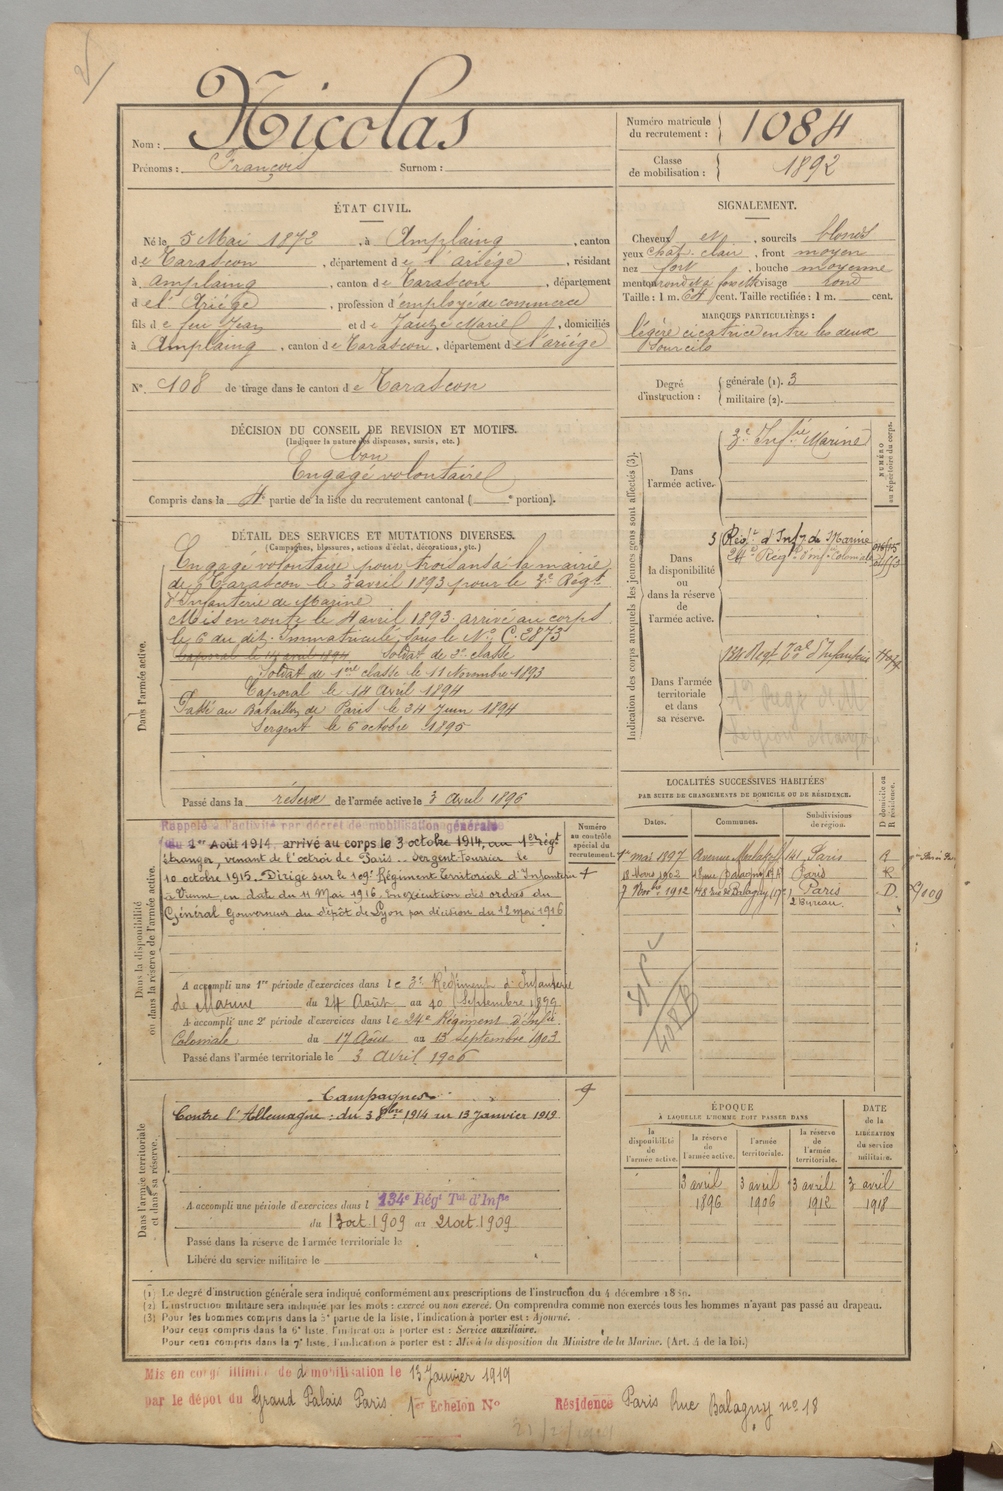 Nom : Nicolas
Prénoms : François Surnom :
Numéro matricule du recrutement : 1084
Classe de mobilisation : 1892
ÉTAT CIVIL.
Né le 5 Mai 1872, à Amplaing, canton
de Tarascon, département de l'Ariége, résidant
à Amplaing, canton de Tarascon, département
de l'Ariége, profession d'employé de commerce
fils de feu Jean et de Jauze Marie, domiciliés
à Amplaing, canton de Tarascon, département de l'ariége
N° 108 de tirage dans le canton de Tarascon
SIGNALEMENT.
Cheveux et, sourcils blonds
yeux chat. clair, front moyen
nez fort, bouche moyenne
menton rond et à fossette visage rond
Taille : 1 m. 64 cent. Taille rectifiée : 1 m. cent.
MARQUES PARTICULIÈRES :
légère cicatrice entre les deux
sourcils
Degré d'instruction : générale (1). 3
militaire (2).
DÉCISION DU CONSEIL DE REVISION ET MOTIFS.
(Indiquer la nature des dispenses, sursis, etc.)
bon
Engagé volontaire
Compris dans la 4e partie de la liste du recrutement cantonal ( e portion).
DÉTAIL DES SERVICES ET MUTATIONS DIVERSES.
(Campagnes, blessures, actions d'éclat, décorations, etc.)
Dans l'armée active.
Engagé volontaire pour trois ans à la mairie
de Tarascon le 3 avril 1893 pour le 3e Régt
d'Infanterie de Marine
Mis en route le 4 avril 1893 arrivé au corps
le 6 au dit. Immatriculé sous le N° C. 2873
Caporal le 14 avril 1894 Soldat de 2e classe
Soldat de 1ère classe le 11 Novembre 1893
Caporal le 14 Avril 1894
Passé au Bataillon de Paris le 24 Juin 1894
Sergent le 6 octobre 1895
Passé dans la réserve de l'armée active le 3 Avril 1896
Indication des corps auxquels les jeunes gens sont affectés (3).
NUMÉRO au répertoire du corps.
Dans l'armée active.
3e Infrie Marine
Dans la disponibilité ou dans la réserve de l'armée active.
3 Régt d'Infie de Marine
24e Régt d'Infie Coloniale
Dans l'armée territoriale et dans sa réserve.
134 Regt Tal d'Infanterie
LOCALITÉS SUCCESSIVES HABITÉES
PAR SUITE DE CHANGEMENTS DE DOMICILE OU DE RÉSIDENCE.
Dates. Communes. Subdivisions de région. D domicile ou R résidence.
1er mai 1897 Paris R
Mars 1902 Paris R
7 Novbre 1912 Rue Balagny Paris D
2 Bureau.
Dans la disponibilité ou dans la réserve de l'armée active.
Numéro au contrôle spécial du recrutement.
Rappelé à l'activité par décret de mobilisation générale
du 1er Août 1914. arrivé au corps le 3 octobre 1914, au 1er régt
étranger, venant de l'octroi de Paris. Sergent Fourrier le
10 octobre 1915. Dirigé sur le 109e Régiment Territorial d'Infanterie
à Vienne, en date du 11 Mai 1916, en exécution des ordres du
Général Gouverneur du dépôt de Lyon par décision du 12 mai 1916
A accompli une 1re période d'exercices dans le 3e Régiment d'Infanterie
de Marine du 24 Août au 20 Septembre 1899
A accompli une 2e période d'exercices dans le 24e Régiment d'Infie
Coloniale du 17 Août au 13 Septembre 1903
Passé dans l'armée territoriale le 3 Avril 1906
Dans l'armée territoriale et dans sa réserve.
Campagnes
Contre l'Allemagne : du 3 8bre 1914 au 13 Janvier 1919
A accompli une période d'exercices dans l 134e Régt Tal d'Infie
du 13 oct 1909 au 21 oct 1909
Passé dans la réserve de l'armée territoriale le
Libéré du service militaire le
ÉPOQUE
À LAQUELLE L'HOMME DOIT PASSER DANS
la disponibilité de l'armée active. la réserve de l'armée active. l'armée territoriale. la réserve de l'armée territoriale.
DATE de la LIBÉRATION du service militaire.
3 avril 1896 3 avril 1906 3 avril 1912 3 avril 1918
(1) Le degré d'instruction générale sera indiqué conformément aux prescriptions de l'instruction du 4 décembre 1889.
(2) L'instruction militaire sera indiquée par les mots : exercé ou non exercé. On comprendra comme non exercés tous les hommes n'ayant pas passé au drapeau.
(3) Pour les hommes compris dans la 5e partie de la liste, l'indication à porter est : Ajourné.
Pour ceux compris dans la 6e liste, l'indication à porter est : Service auxiliaire.
Pour ceux compris dans la 7e liste, l'indication à porter est : Mis à la disposition du Ministre de la Marine. (Art. 4 de la loi.)
Mis en congé illimité de démobilisation le 13 Janvier 1919
par le dépôt du Grand Palais Paris. 1er Echelon N° Résidence Paris Rue Balagny n° 18